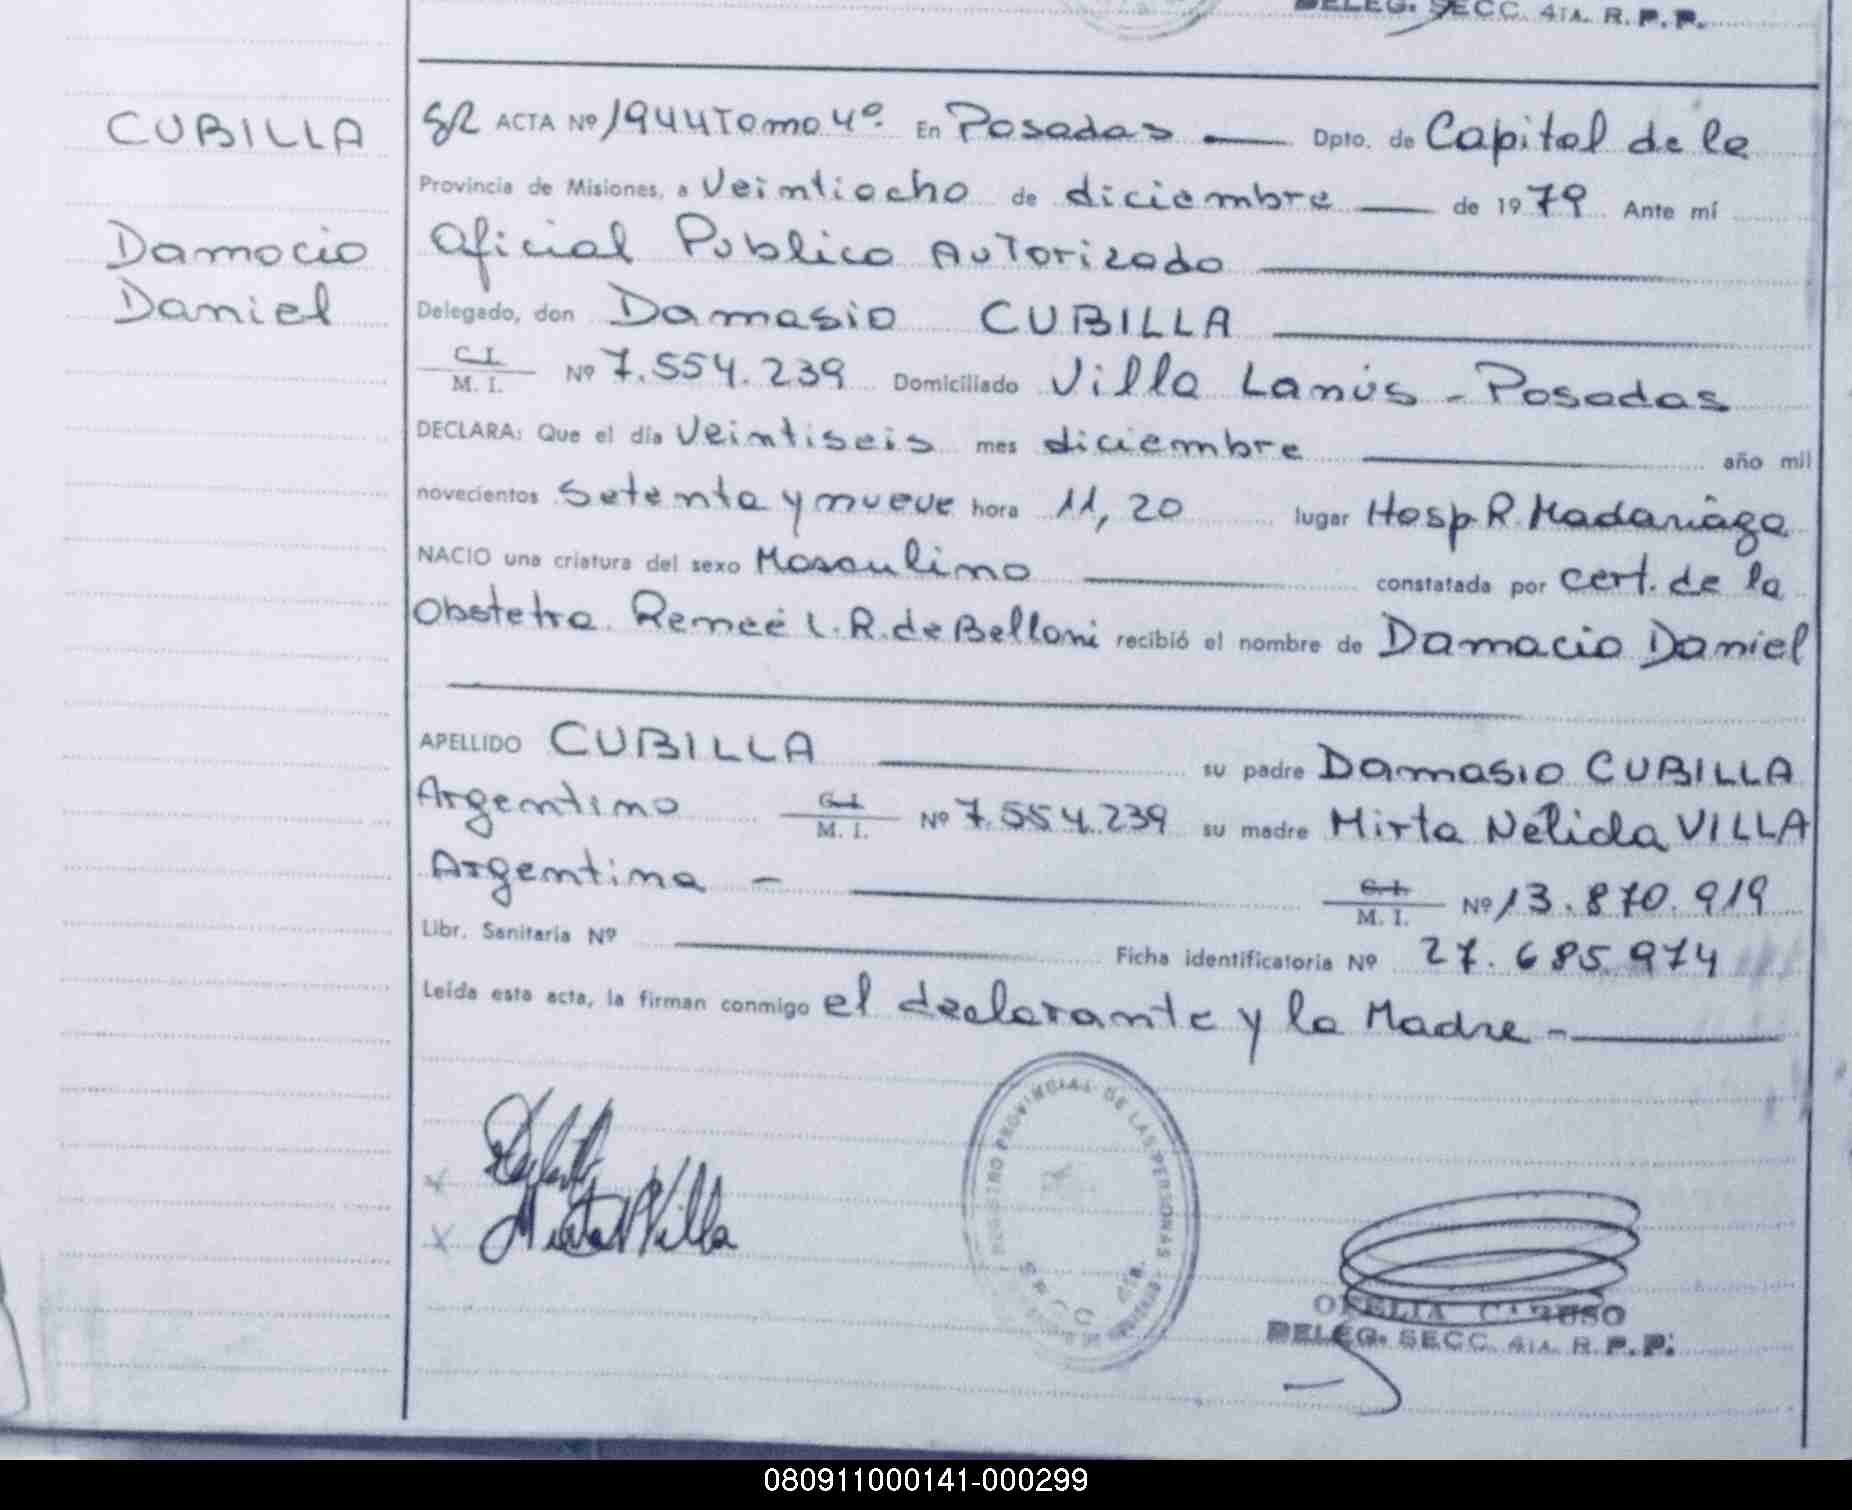 DELEG. SECC. 4TA. R. P. P.
CUBILLA
Damacio
Daniel
ACTA Nº 1944 Tomo 4º. En Posadas — Dpto. de Capital de la
Provincia de Misiones, a Veintiocho de diciembre — de 1979 Ante mí
Oficial Publico Autorizado
Delegado, don Damasio CUBILLA
C.I. M. I. Nº 7.554.239 Domiciliado Villa Lanús - Posadas
DECLARA: Que el día Veintiseis mes diciembre año mil
novecientos setenta y nueve hora 11,20 lugar Hosp. R. Madariaga
NACIO una criatura del sexo Masculino constatada por cert. de la
Obstetra. Reneé L. R. de Belloni recibió el nombre de Damacio Daniel
APELLIDO CUBILLA su padre Damasio CUBILLA
Argentino C.I. M. I. Nº 7.554.239 su madre Mirta Nélida VILLA
Argentina - C.I. M. I. Nº 13.870.919
Libr. Sanitaria Nº Ficha identificatoria Nº 27.685.974
Leída esta acta, la firman conmigo el declarante y la Madre -
Mirta N Villa
REGISTRO PROVINCIAL DE LAS PERSONAS
SECC. 4TA.
OFELIA CARUSO
DELEG. SECC. 4TA. R. P. P.
080911000141-000299